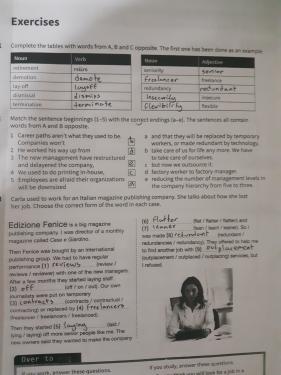 Exercises
Complete the tables with words from A, B and C opposite. The first one has been done as an example.
Noun Verb
retirement retire
demotion demote
lay-off layoff
dismissal dismiss
termination terminate
Noun Adjective
seniority senior
freelancer freelance
redundancy redundant
insecurity insecure
flexibility flexible
Match the sentence beginnings (1–5) with the correct endings (a–e). The sentences all contain
words from A and B opposite.
1 Career paths aren't what they used to be.
Companies won't
2 He worked his way up from
3 The new management have restructured
and delayered the company,
4 We used to do printing in-house,
5 Employees are afraid their organizations
will be downsized
a and that they will be replaced by temporary
workers, or made redundant by technology.
b take care of us for life any more. We have
to take care of ourselves.
c but now we outsource it.
d factory worker to factory manager.
e reducing the number of management levels in
the company hierarchy from five to three.
Carla used to work for an Italian magazine publishing company. She talks about how she lost
her job. Choose the correct form of the word in each case.
Edizione Fenice is a big magazine
publishing company. I was director of a monthly
magazine called Casa e Giardino.
Then Fenice was bought by an international
publishing group. We had to have regular
performance (1) reviews (review /
reviews / reviewer) with one of the new managers.
After a few months they started laying staff
(2) off (off / on / out). Our own
journalists were put on temporary
(3) contracts (contracts / contractual /
contracting) or replaced by (4) freelancers
(freelancer / freelancers / freelanced).
Then they started (5) laying (laid /
lay / laying) off more senior people like me. The
new owners said they wanted to make the company
(6) flatter (flat / flatter / flatten) and
(7) leaner (lean / leant / leaner). So I
was made (8) redundant (redundant /
redundancies / redundancy). They offered to help me
to find another job with (9) outplacement
(outplacement / outplaced / outplacing) services, but
I refused.
Over to
If you work, answer these questions.
If you study, answer these questions.